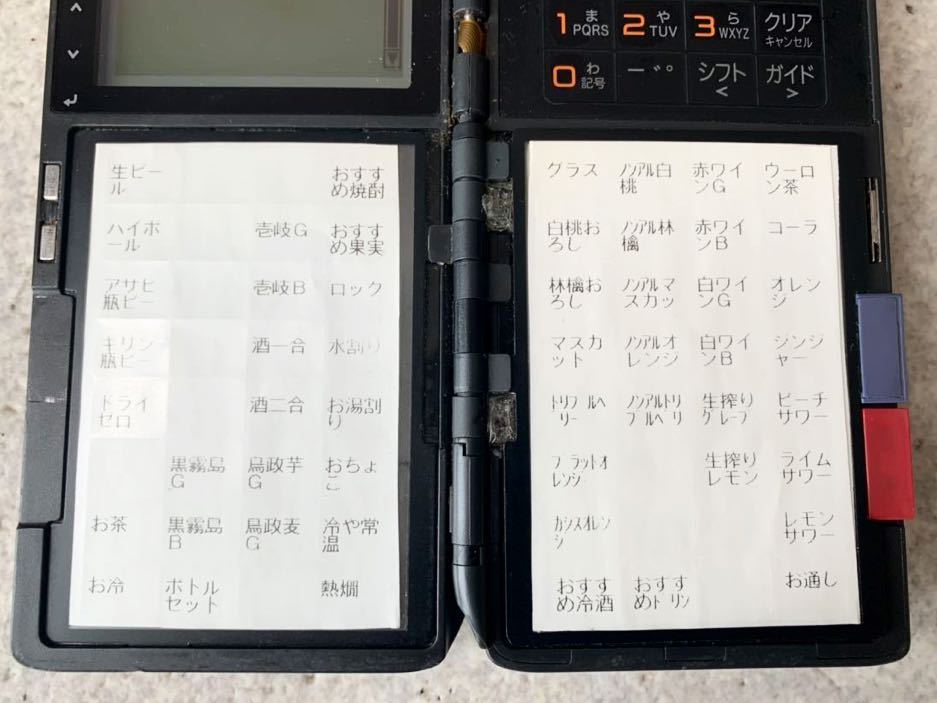 1 ま PQRS 2 や TUV 3 ら WXYZ クリア キャンセル
0 わ 記号 ー゛゜ シフト < ガイド >
生ビー
ル
おすす
め焼酎
ハイボ
ール
壱岐G
おすす
め果実
アサヒ
瓶ビー
壱岐B
ロック
キリン
瓶ビー
酒一合
水割り
ドライ
ゼロ
酒二合
お湯割
り
黒霧島
G
烏政芋
G
おちょ
こ
お茶
黒霧島
B
烏政麦
G
冷や常
温
お冷
ボトル
セット
熱燗
グラス
ノンアル白
桃
赤ワイ
ンG
ウーロ
ン茶
白桃お
ろし
ノンアル林
檎
赤ワイ
ンB
コーラ
林檎お
ろし
ノンアルマ
スカッ
白ワイ
ンG
オレン
ジ
マスカ
ット
ノンアルオ
レンジ
白ワイ
ンB
ジンジ
ャー
トリプルベ
リー
ノンアルトリ
プルベリ
生搾り
グレープ
ピーチ
サワー
ブラットオ
レンジ
生搾り
レモン
ライム
サワー
カシスオレン
ジ
レモン
サワー
おすす
め冷酒
おすす
めドリン
お通し